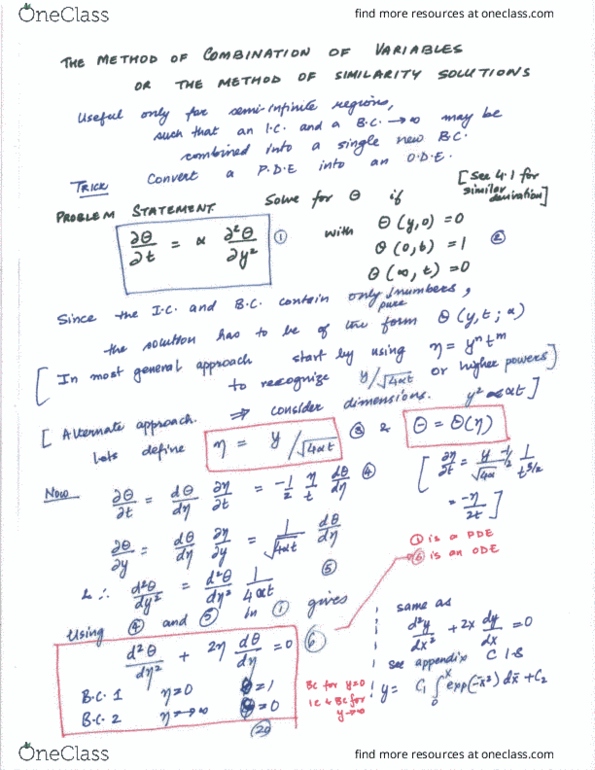 OneClass
find more resources at oneclass.com
THE METHOD OF COMBINATION OF VARIABLES
OR THE METHOD OF SIMILARITY SOLUTIONS
Useful only for semi-infinite regions,
such that an I.C. and a B.C. → ∞ may be
combined into a single new B.C.
TRICK Convert a P.D.E into an O.D.E.
[See 4.1 for similar derivation]
PROBLEM STATEMENT. Solve for Θ if
∂Θ/∂t = α ∂²Θ/∂y² ① with Θ(y,0) = 0
Θ(0,t) = 1 ②
Θ(∞,t) = 0
Since the I.C. and B.C. contain only pure numbers,
the solution has to be of the form Θ(y,t; α)
[In most general approach start by using η = yⁿtᵐ
to recognize y/√4αt or higher powers]
[Alternate approach. ⇒ consider dimensions. y² ∝ αt]
lets define η = y/√4αt ③ & Θ = Θ(η)
Now ∂Θ/∂t = dΘ/dη ∂η/∂t = -1/2 η/t dΘ/dη ④
[∂η/∂t = y/√4α -1/2 1/t^3/2
= -η/2t]
∂Θ/∂y = dΘ/dη ∂η/∂y = 1/√4αt dΘ/dη
① is a PDE
⑥ is an ODE
& ∴ d²Θ/dy² = d²Θ/dη² 1/4αt ⑤
Using ④ and ⑤ in ① gives
d²Θ/dη² + 2η dΘ/dη = 0 ⑥
B.C. 1 η=0 Θ=1
B.C. 2 η→∞ Θ=0
(2a)
BC for y=0
IC & BC for
y→∞
same as
d²y/dx² + 2x dy/dx = 0
see appendix C 1.8
y = C₁ ∫₀ˣ exp(-x̄²) dx̄ + C₂
OneClass
find more resources at oneclass.com